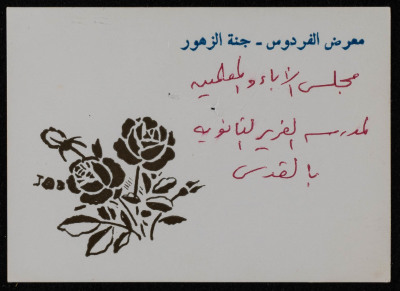 معرض الفردوس - جنة الزهور
مجلس الآباء والمعلمين
لمدرسة الفرير الثانوية
بالقدس